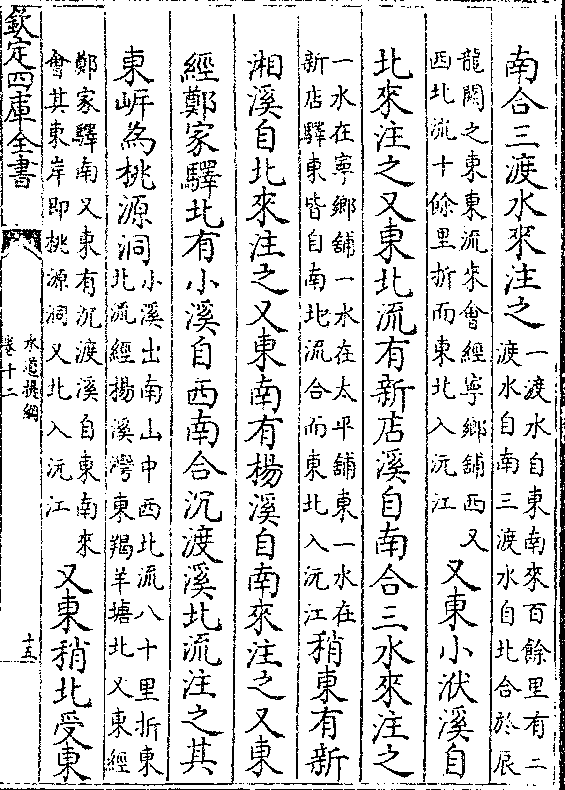 南合三渡水來注之
一渡水自東南來百餘里有二
渡水自南三渡水自北合於辰
龍闗之東東流來會經寧鄉舖西又
西北流十餘里折而東北入沅江
又東小洑溪自
北來注之又東北流有新店溪自南合三水來注之
一水在寧鄉舖一水在太平舖東一水在
新店驛東皆自南北流合而東北入沅江
稍東有新
湘溪自北來注之又東南有楊溪自南來注之又東
經鄭家驛北有小溪自西南合沉渡溪北流注之其
東岍為桃源洞
小溪出南山中西北流八十里折東
北流經楊溪灣東羯羊塘北又東經
鄭家驛南又東有沉渡溪自東南來
會其東岸即桃源洞又北入沅江
又東稍北受東
欽定四庫全書
水道提綱
卷十二
十五